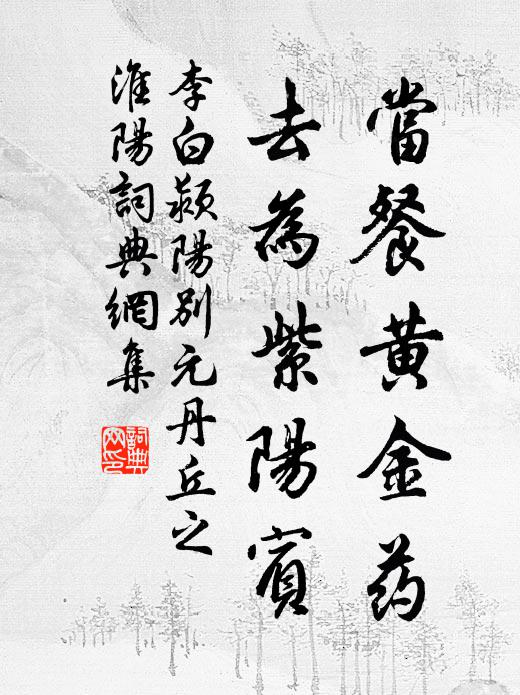 當餐黄金药
去為紫陽賓
李白颍陽別元丹丘之
淮陽詞典網集
詞典
网印